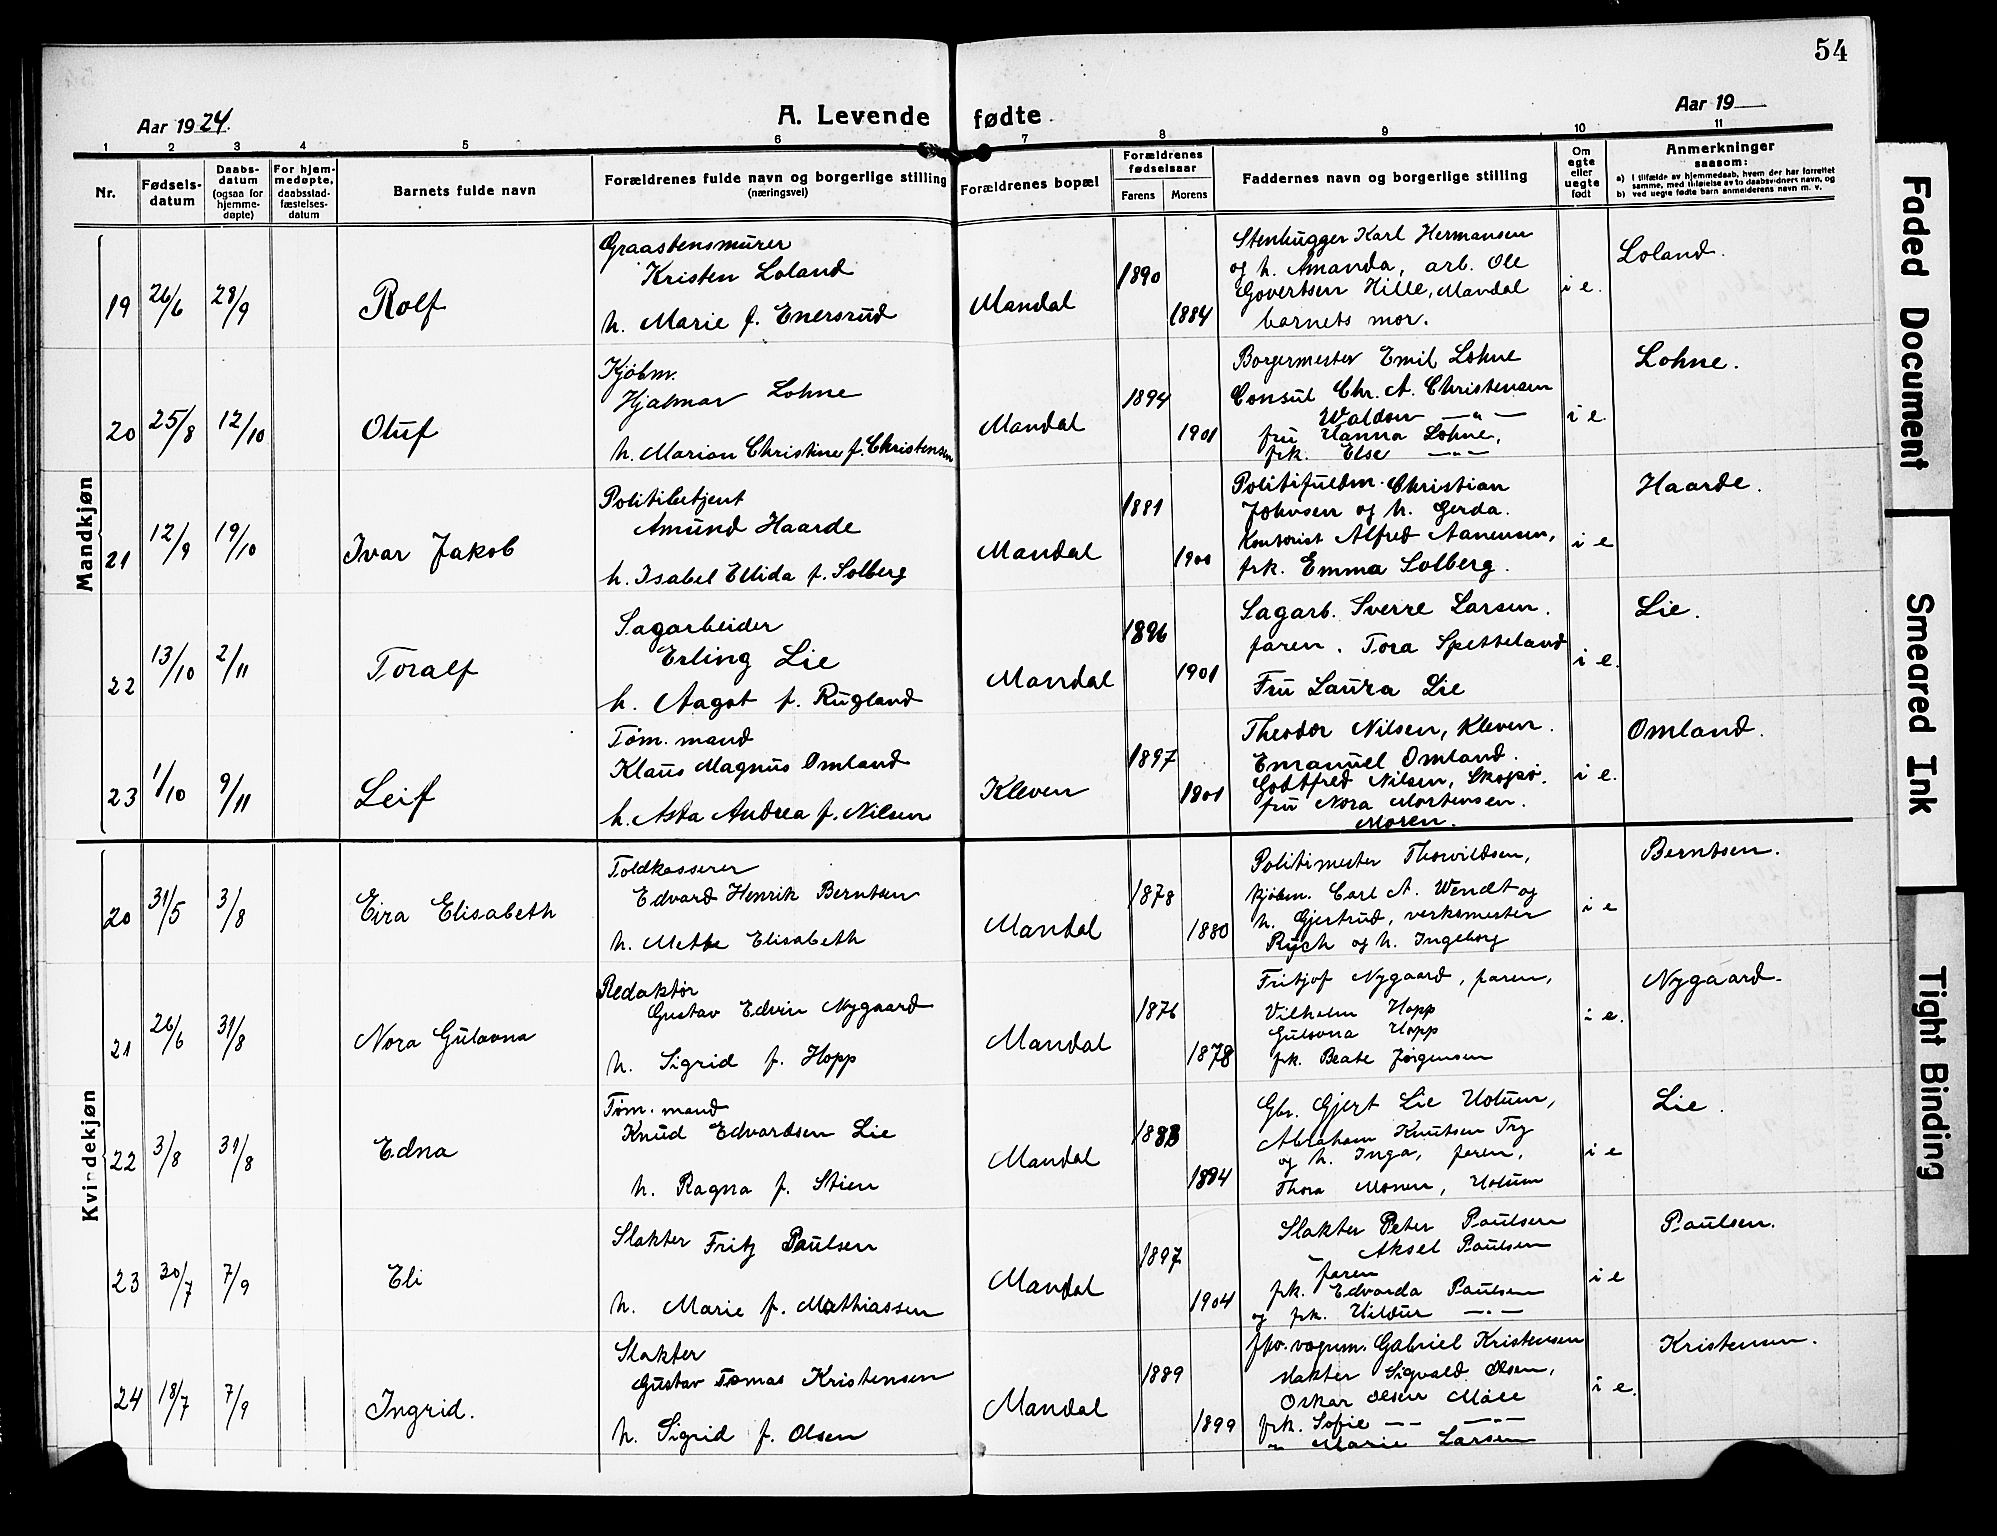 54
Aar 1924.
A. Levende fødte
Aar 19
1 2 3 4 5 6 7 8 9 10 11
Nr.
Fødsels-
datum
Daabs-
datum
(ogsaa for
hjemme-
døpte)
For hjem-
medøpte,
daabsstad-
fæstelses-
datum
Barnets fulde navn
Forældrenes fulde navn og borgerlige stilling
(næringsvei)
Forældrenes bopæl
Forældrenes
fødselsaar
Farens Morens
Faddernes navn og borgerlige stilling
Om
egte
eller
uegte
født
Anmerkninger
saasom:
a) i tilfælde av hjemmedaab, hvem der har forrettet
samme, med tilføielse av to daabsvidners navn, og
b) ved uegte fødte barn anmelderens navn m. v.
Mandkjøn
19 26/6 28/9 Rolf
Graastensmurer
Kristen Loland
h. Marie f. Enersrud
Mandal 1890 1884
Stenhugger Karl Hermansen
og h. Amanda, arb. Ole
Govertsen Hille, Mandal
barnets mor.
i e. Loland.
20 25/8 12/10 Oluf
Kjøbm.
Hjalmar Lohne
h. Marion Christine f. Christensen
Mandal 1894 1901
Borgermester Emil Lohne
Consul Chr. A. Christensen
Waldsen — " —
fru Hanna Lohne,
frk. Else — " —
i e Lohne.
21 12/9 19/10 Ivar Jakob
Politibetjent
Amund Haarde
h. Isabel Ellida f. Solberg
Mandal 1881 1900
Politifuldm. Christian
Johnsen og h. Gerda.
Kontorist Alfred Aanensen,
frk. Emma Solberg.
i e Haarde.
22 13/10 2/11 Toralf
Sagarbeider
Erling Lie
h. Aagot f. Rugland
Mandal 1896 1901
Sagarb. Sverre Larsen.
faren. Tora Spetteland
Fru Laura Lie
i e. Lie.
23 1/10 9/11 Leif
Tøm. mand
Klaus Magnus Omland
h. Asta Andrea f. Nilsen
Kleven 1897 1901
Theodor Nilsen, Kleven.
Emanuel Omland.
Godtfred Nilsen, Skogsø.
fru Nora Mortensen.
Moren.
i e. Omland.
Kvindekjøn
20 31/5 3/8 Eira Elisabeth
Toldkasserer
Edvard Henrik Berntsen
h. Mette Elisabeth
Mandal 1878 1880
Politimester Thorvildsen,
kjøbm. Carl A. Wendt og
h. Gjertrud, verksmester
Rych og h. Ingeborg
i e Berntsen.
21 26/6 31/8 Nora Gulovna
Redaktør
Gustav Edvin Nygaard
h. Sigrid f. Hopp
Mandal 1876 1878
Fritjof Nygaard, faren,
Vilhelm Hopp
Gulovna Hopp
frk. Beate Jørgensen
i e. Nygaard.
22 3/8 31/8 Edna
Tøm. mand
Knud Edvardsen Lie
h. Ragna f. Stien
Mandal 1883 1894
Gbr. Gjert Lie Holum,
Abraham Knutsen Try
og h. Inga, faren,
Thora Monen, Holum
i e Lie.
23 30/7 7/9 Eli
Slakter Fritz Paulsen
h. Marie f. Mathiassen
Mandal 1897 1904
Slakter Peter Paulsen
Aksel Paulsen
faren
frk. Edvarda Paulsen
og frk. Hildur — " —
i e Paulsen.
24 18/7 7/9 Ingrid.
Slakter
Gustav Tomas Kristensen
h. Sigrid f. Olsen
Mandal 1889 1899
Gabriel Kristensen
slakter Sigvald Olsen,
Oskar Olsen Møll
frk. Sofie — — — " —
" Marie Larsen
i e. Kristensen.
Faded Document
Smeared Ink
Tight Binding